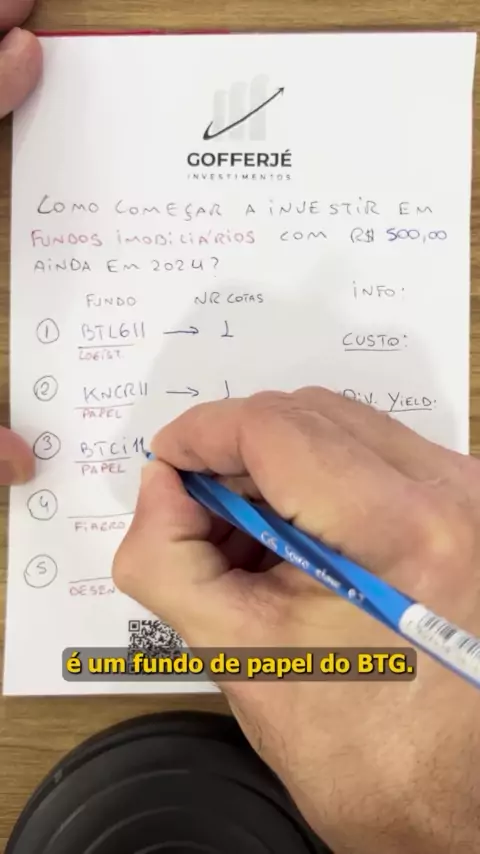 GOFFERJÉ
INVESTIMENTOS
COMO COMEÇAR A INVESTIR EM
FUNDOS IMOBILIÁRIOS COM R$ 500,00
AINDA EM 2024?
FUNDO NR COTAS INFO:
1 BTLG11 → 1
LOGÍST. CUSTO:
2 KNCR11 → 1
PAPEL DIV. YIELD:
3 BTCI11
PAPEL
4
FIAGRO
5
DESEN
é um fundo de papel do BTG.